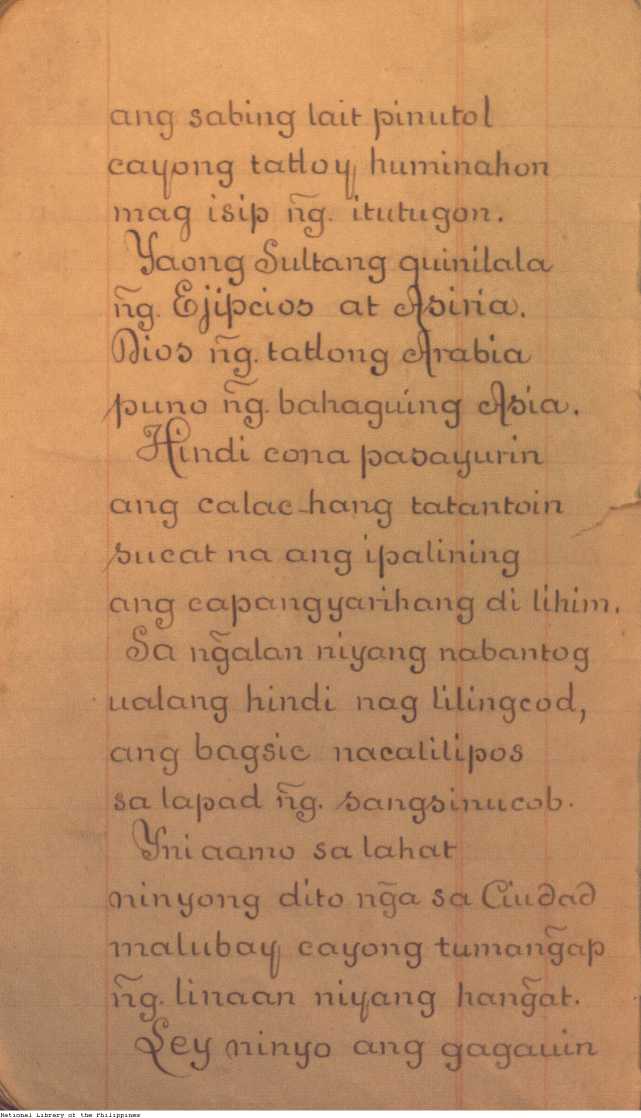 ang sabing lait pinutol
cayong tatloy huminahon
mag isip n͠g. itutugon.
Yaong Sultang quinilala
n͠g. Ejipcios at Asiria.
Dios n͠g. tatlong Arabia
puno n͠g. bahaguing Asia.
Hindi cona pasayurin
ang calac-hang tatantoin
sucat na ang ipalining
ang capangyarihang di lihim.
Sa ng̃alan niyang nabantog
ualang hindi nag lilingcod,
ang bagsic nacalilipos
sa lapad n͠g. sangsinucob.
Yni aamo sa lahat
ninyong dito ng̃a sa Ciudad
malubay cayong tumang̃ap
n͠g. linaan niyang hang̃at.
Ley ninyo ang gagauin
National Library of the Philippines